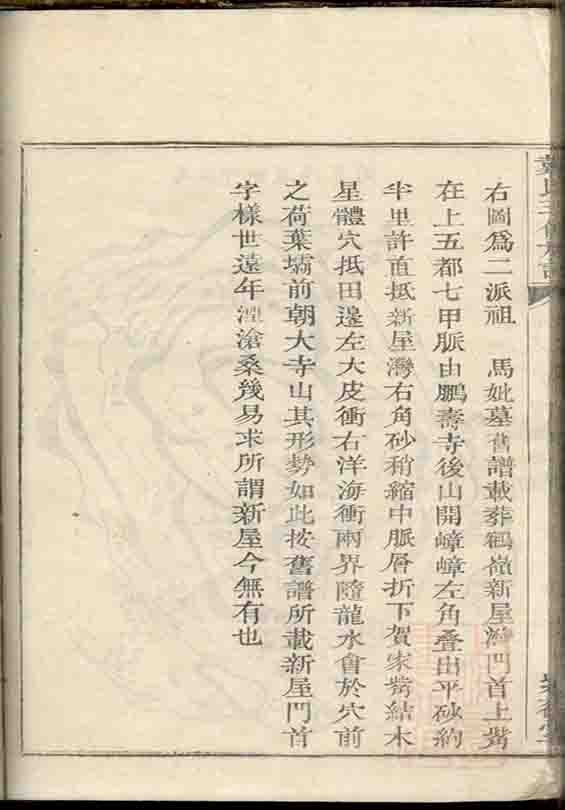 右圖爲二派祖　馬妣墓舊譜載葬鶴嶺新屋灣門首上嘴
在上五都七甲脈由鵬壽寺後山開嶂嶂左角叠出平砂約
半里許直抵新屋灣右角砂稍縮中脈層折下賀家嘴結木
星體穴抵田邊左大皮衝右洋海衝兩界隨龍水會於穴前
之荷葉壩前朝大寺山其形勢如此按舊譜所載新屋門首
字樣世遠年湮滄桑幾易求所謂新屋今無有也